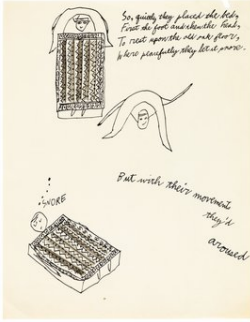 So, quietly they placed the bed,
First the foot and then the head,
To rest upon the old oak floor,
Where peacefully they let it snore.
SNORE
But with their movement
they'd
aroused